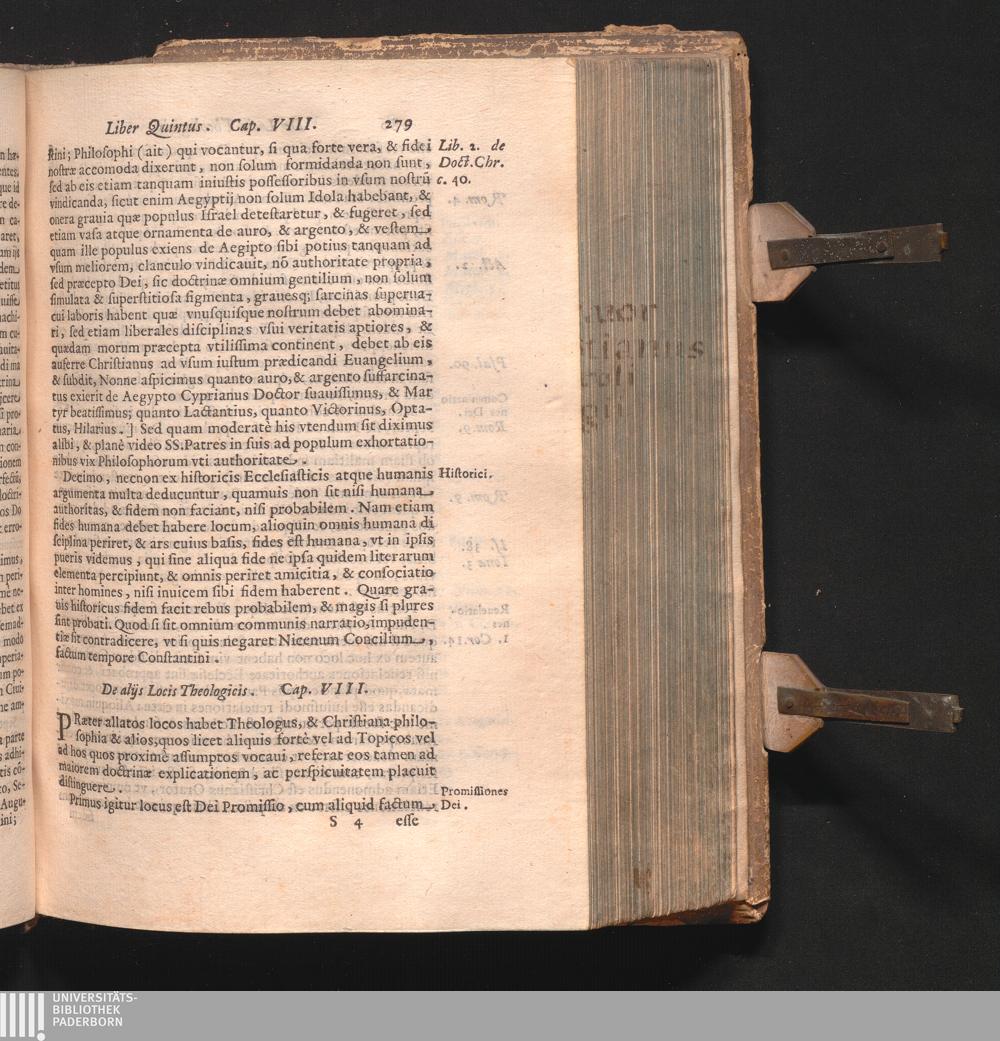 Liber Quintus. Cap. VIII. 279
ſtini; Philoſophi (ait) qui vocantur, ſi qua forte vera, & fidei
noſtræ accomoda dixerunt, non ſolum formidanda non ſunt,
ſed ab eis etiam tanquam iniuſtis poſſeſſoribus in vſum noſtrũ
vindicanda, ſicut enim Aegyptij non ſolum Idola habebant, &
onera grauia quæ populus Iſrael deteſtaretur, & fugeret, ſed
etiam vaſa atque ornamenta de auro, & argento, & veſtem
quam ille populus exiens de Aegipto ſibi potius tanquam ad
vſum meliorem, clanculo vindicauit, nõ authoritate propria,
ſed præcepto Dei, ſic doctrinæ omnium gentilium, non ſolum
ſimulata & ſuperſtitioſa figmenta, graueſq; ſarcinas ſuperua-
cui laboris habent quæ vnuſquiſque noſtrum debet abomina-
ri, ſed etiam liberales diſciplinas vſui veritatis aptiores, &
quædam morum præcepta vtiliſſima continent, debet ab eis
auferre Chriſtianus ad vſum iuſtum prædicandi Euangelium,
& ſubdit, Nonne aſpicimus quanto auro, & argento ſuffarcina-
tus exierit de Aegypto Cyprianus Doctor ſuauiſſimus, & Mar
tyr beatiſſimus; quanto Lactantius, quanto Victorinus, Opta-
tus, Hilarius.] Sed quam moderatè his vtendum ſit diximus
alibi, & planè video SS. Patres in ſuis ad populum exhortatio-
nibus vix Philoſophorum vti authoritate.
Decimo, necnon ex hiſtoricis Eccleſiaſticis atque humanis
argumenta multa deducuntur, quamuis non ſit niſi humana
authoritas, & fidem non faciant, niſi probabilem. Nam etiam
fides humana debet habere locum, alioquin omnis humana di
ſciplina periret, & ars cuius baſis, fides eſt humana, vt in ipſis
pueris videmus, qui ſine aliqua fide ne ipſa quidem literarum
elementa percipiunt, & omnis periret amicitia, & conſociatio
inter homines, niſi inuicem ſibi fidem haberent. Quare gra-
uis hiſtoricus fidem facit rebus probabilem, & magis ſi plures
ſint probati. Quod ſi ſit omnium communis narratio, impuden-
tiæ ſit contradicere, vt ſi quis negaret Nicenum Concilium,
factum tempore Conſtantini.
De alijs Locis Theologicis. Cap. VIII.
PRæter allatos locos habet Theologus, & Chriſtiana philo-
ſophia & alios, quos licet aliquis fortè vel ad Topicos vel
ad hos quos proximè aſſumptos vocaui, referat eos tamen ad
maiorem doctrinæ explicationem, ac perſpicuitatem placuit
diſtinguere.
Primus igitur locus eſt Dei Promiſſio, cum aliquid factum
S 4 eſſe
Lib. 2. de
Doct. Chr.
c. 40.
Hiſtorici.
Promiſſiones
Dei.
UNIVERSITÄTS-
BIBLIOTHEK
PADERBORN